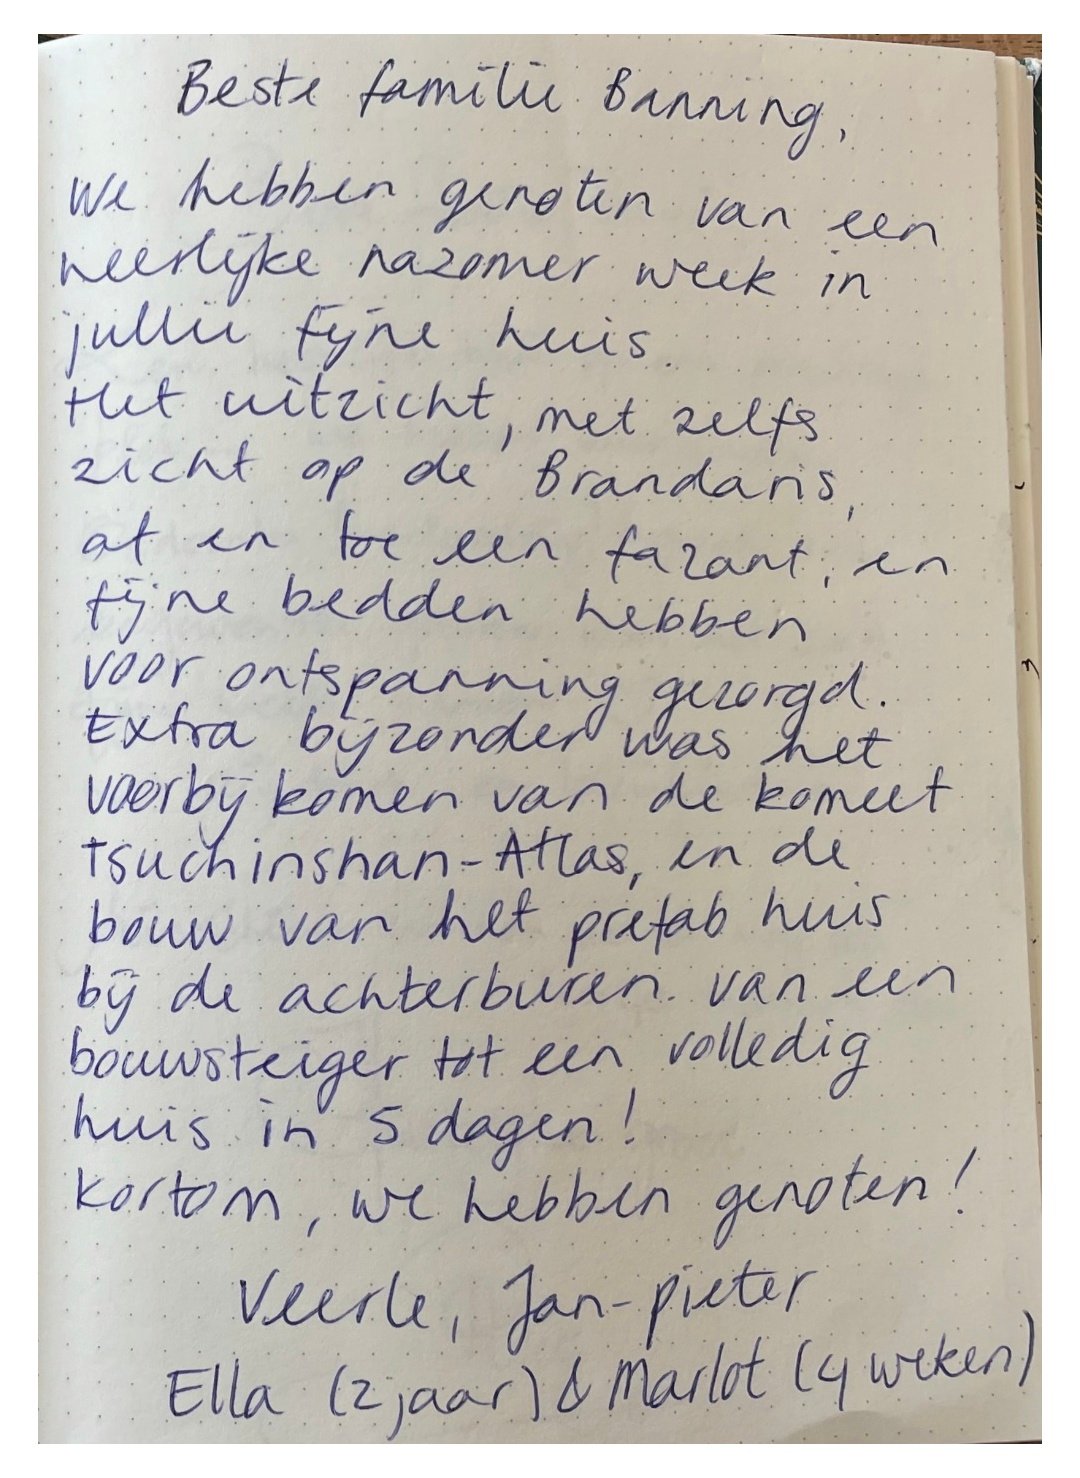 Beste familie Banning,
We hebben genoten van een
heerlijke nazomer week in
jullie fijne huis.
Het uitzicht, met zelfs
zicht op de Brandaris,
af en toe een fazant, en
fijne bedden hebben
voor ontspanning gezorgd.
Extra bijzonder was het
voorbij komen van de komeet
Tsuchinshan-Atlas, en de
bouw van het prefab huis
bij de achterburen. Van een
bouwsteiger tot een volledig
huis in 5 dagen!
Kortom, we hebben genoten!
Veerle, Jan-pieter
Ella (2 jaar) & Marlot (4 weken)